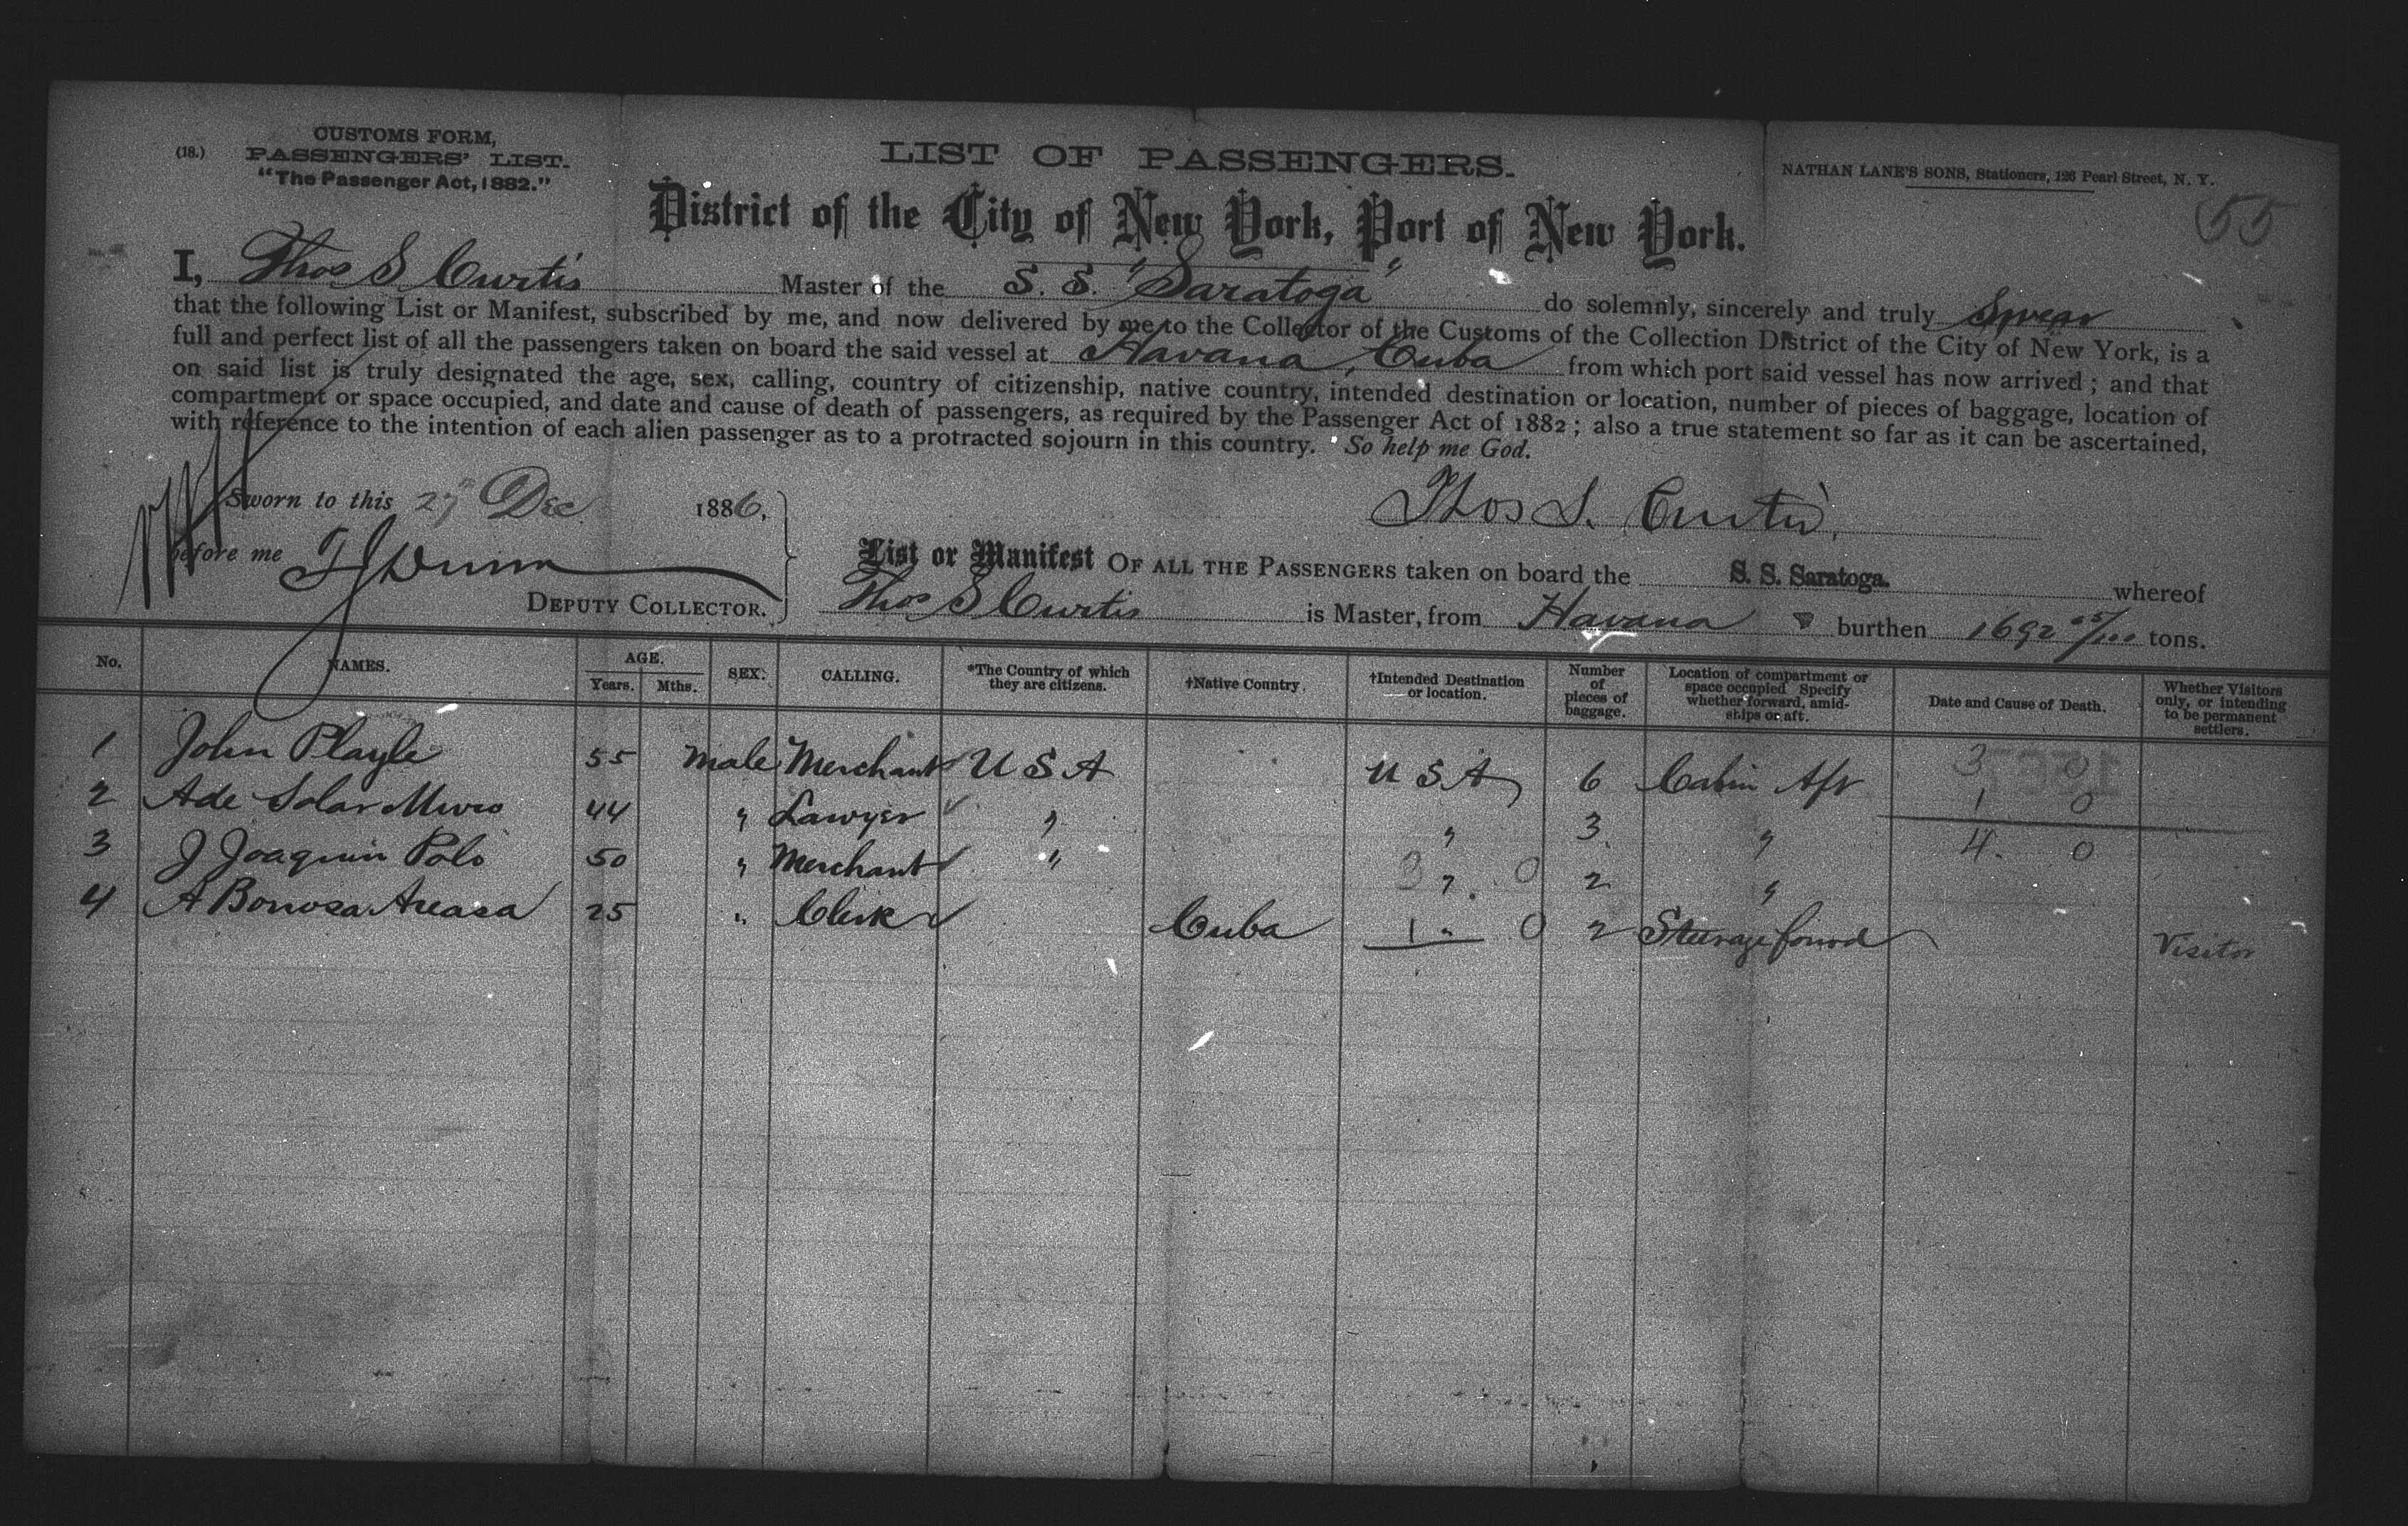 CUSTOMS FORM,
(18.) PASSENGERS' LIST.
"The Passenger Act, 1882."
LIST OF PASSENGERS.
NATHAN LANE'S SONS, Stationers, 126 Pearl Street, N. Y.
55
District of the City of New York, Port of New York.
I, Thos S Curtis Master of the S. S. "Saratoga" do solemnly, sincerely and truly Swear
that the following List or Manifest, subscribed by me, and now delivered by me to the Collector of the Customs of the Collection District of the City of New York, is a
full and perfect list of all the passengers taken on board the said vessel at Havana, Cuba from which port said vessel has now arrived; and that
on said list is truly designated the age, sex, calling, country of citizenship, native country, intended destination or location, number of pieces of baggage, location of
compartment or space occupied, and date and cause of death of passengers, as required by the Passenger Act of 1882; also a true statement so far as it can be ascertained,
with reference to the intention of each alien passenger as to a protracted sojourn in this country. So help me God.
Sworn to this 27 Dec 1886,
Thos S. Curtis,
before me
DEPUTY COLLECTOR.
List or Manifest OF ALL THE PASSENGERS taken on board the S. S. Saratoga. whereof
Thos S Curtis is Master, from Havana burthen 1692 tons.
No. NAMES. AGE. Years. Mths. SEX. CALLING. *The Country of which they are citizens. †Native Country. †Intended Destination or location. Number of pieces of baggage. Location of compartment or space occupied Specify whether forward, amidships or aft. Date and Cause of Death. Whether Visitors only, or intending to be permanent settlers.
1 John Playle 55 male Merchant U S A U S A 6 Cabin Aft 3 0
2 Ade Solar 44 " Lawyer " " 3 " 1 0
3 J Joaquin Polo 50 " Merchant " 3 " 0 2 " 4 0
4 A 25 " Clerk Cuba 1 " 0 2 Steerage forwd Visitor